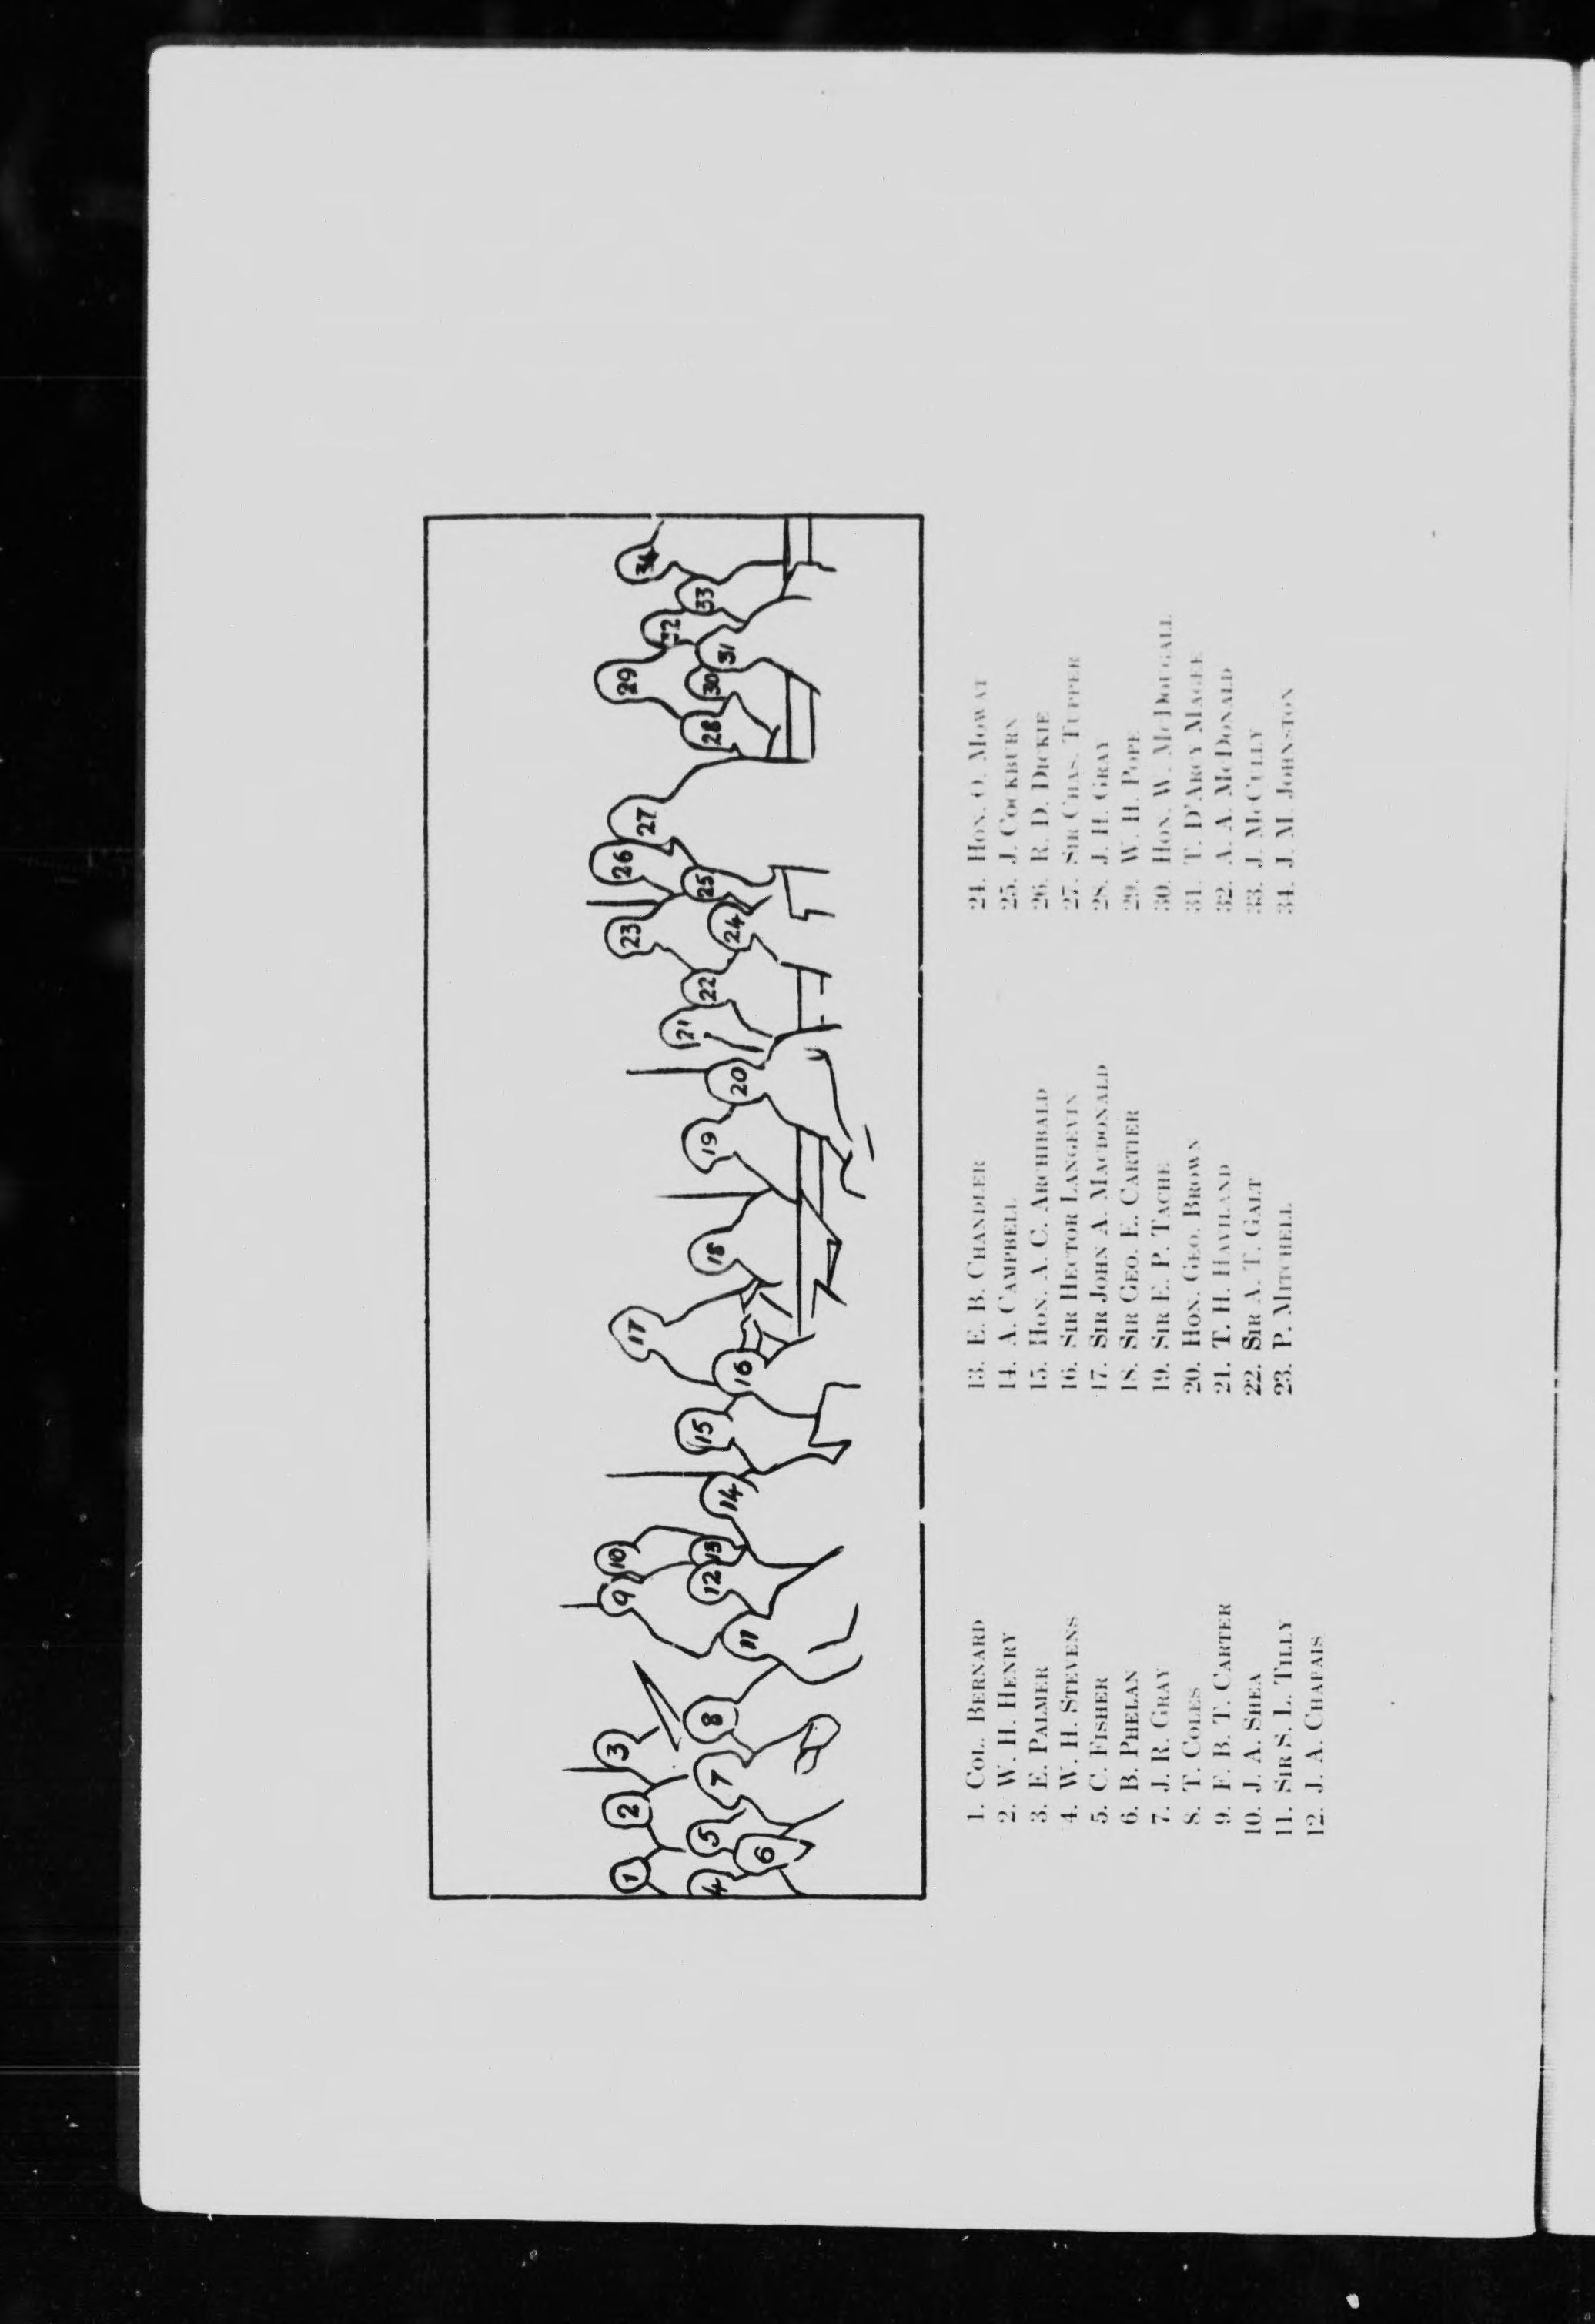 1
2
3
4
5
6
7
8
9
10
11
12
13
14
15
16
17
18
19
20
21
22
23
24
25
26
27
28
29
30
31
32
33
34
1. COL. BERNARD
2. W. H. HENRY
3. E. PALMER
4. W. H. STEVENS
5. C. FISHER
6. B. PHELAN
7. J. R. GRAY
8. T. COLES
9. F. B. T. CARTER
10. J. A. SHEA
11. SIR S. L. TILLY
12. J. A. CHAPAIS
13. E. B. CHANDLER
14. A. CAMPBELL
15. HON. A. C. ARCHIBALD
16. SIR HECTOR LANGEVIN
17. SIR JOHN A. MACDONALD
18. SIR GEO. E. CARTIER
19. SIR E. P. TACHE
20. HON. GEO. BROWN
21. T. H. HAVILAND
22. SIR A. T. GALT
23. P. MITCHELL
24. HON. O. MOWAT
25. J. COCKBURN
26. R. D. DICKIE
27. SIR CHAS. TUPPER
28. J. H. GRAY
29. W. H. POPE
30. HON. W. McDOUGALL
31. T. D'ARCY MAGEE
32. A. A. McDONALD
33. J. McCULLY
34. J. M. JOHNSTON